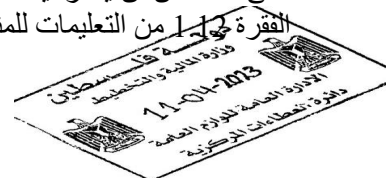 الفقرة 1.13 من التعليمات
دولة فلسطين
وزارة المالية والتخطيط
11-04-2023
الادارة العامة للوازم العامة
دائرة العطاءات المركزية